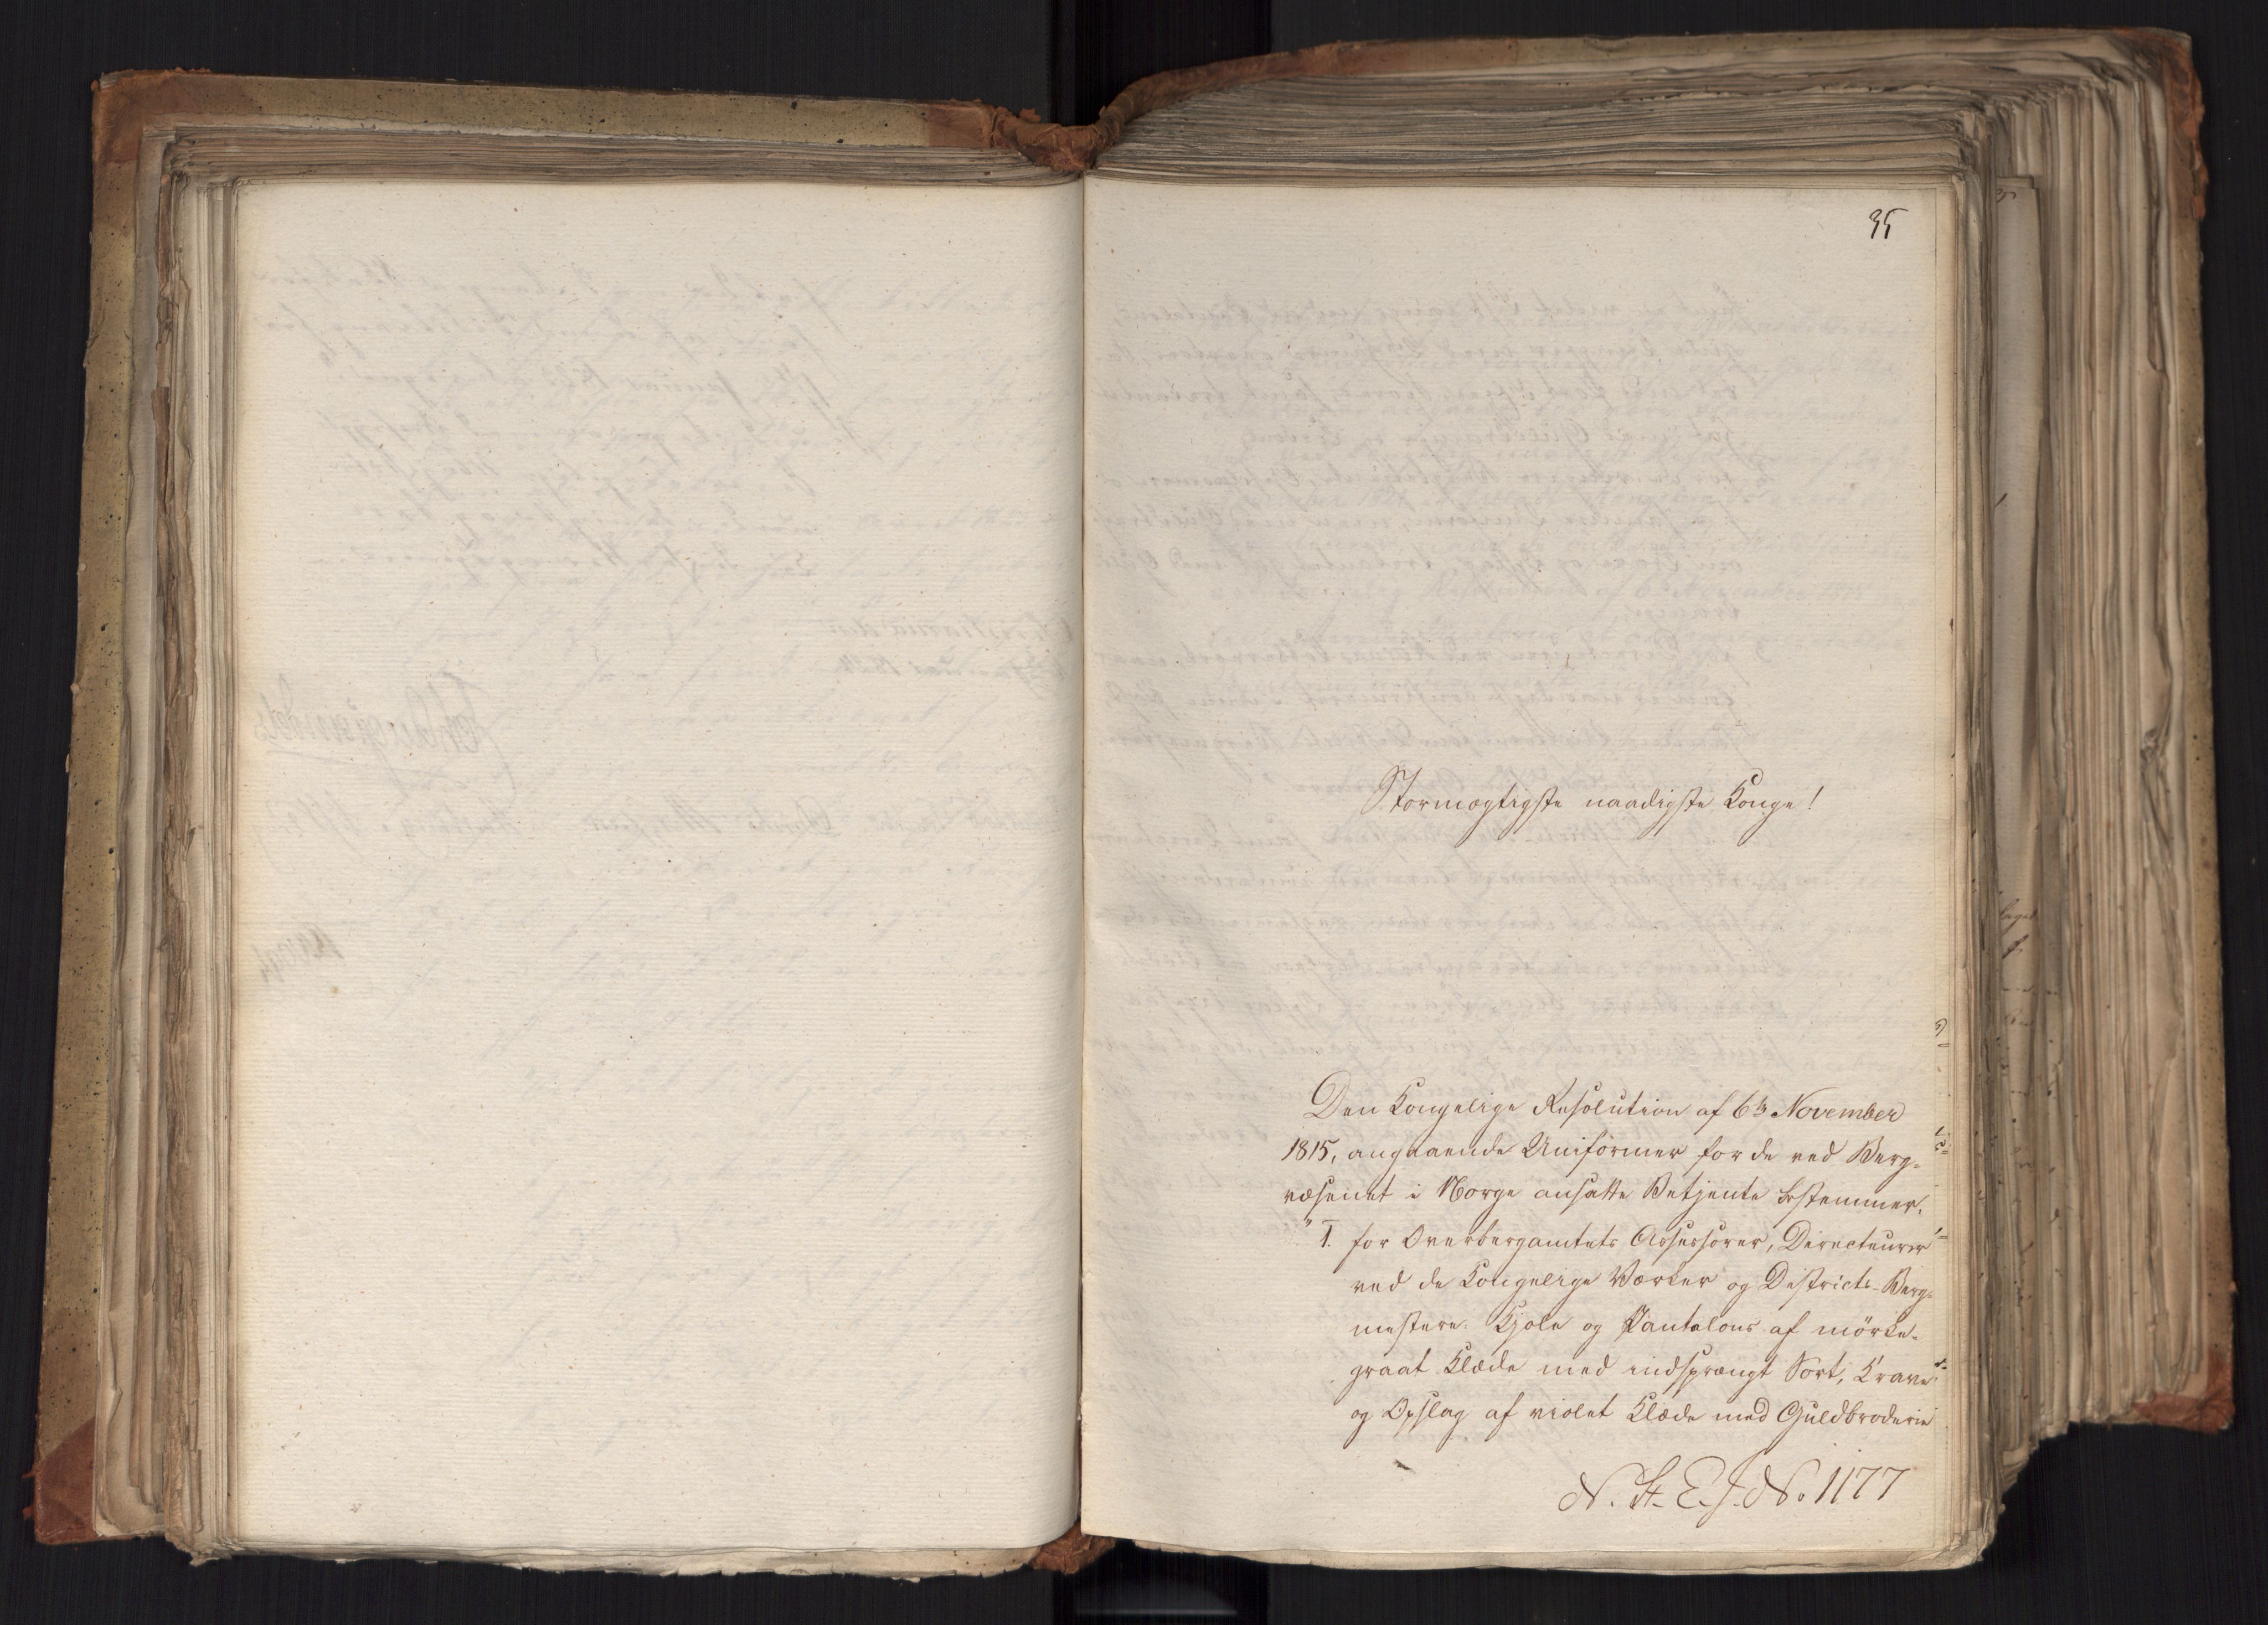 35
Stormægtigste naadigste Konge!
Den Kongelige Resolution af 6te November
1815, angaaende Uniformer for de ved Berg-
væsenet i Norge ansatte Betjente bestemmer.
"1. for Overbergamtets Assessorer, Directeurer
ved de Kongelige Værker og Districts-Berg-
mestere: Kjole og Pantalons af mörke-
graat Klæde med indsprængt Sort, Krave
og Opslag af violet Klæde med Guldbroderie
N. St. E. J. No. 1177